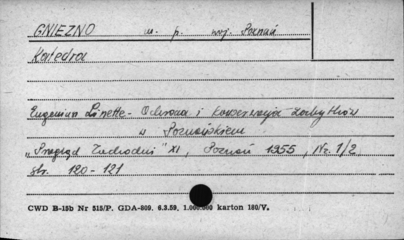 GNIEZNO m. p. woj. Poznań
Katedra
Eugeniusz Linette - Ochrona i konserwacja zabytków
w Poznańskiem
"Przegląd Zachodni" XI, Poznań 1955, Nr. 1/2
str. 120-121
CWD B-15b Nr 515/P. GDA-809. 6.3.59. 1.000.000 karton 180/V.